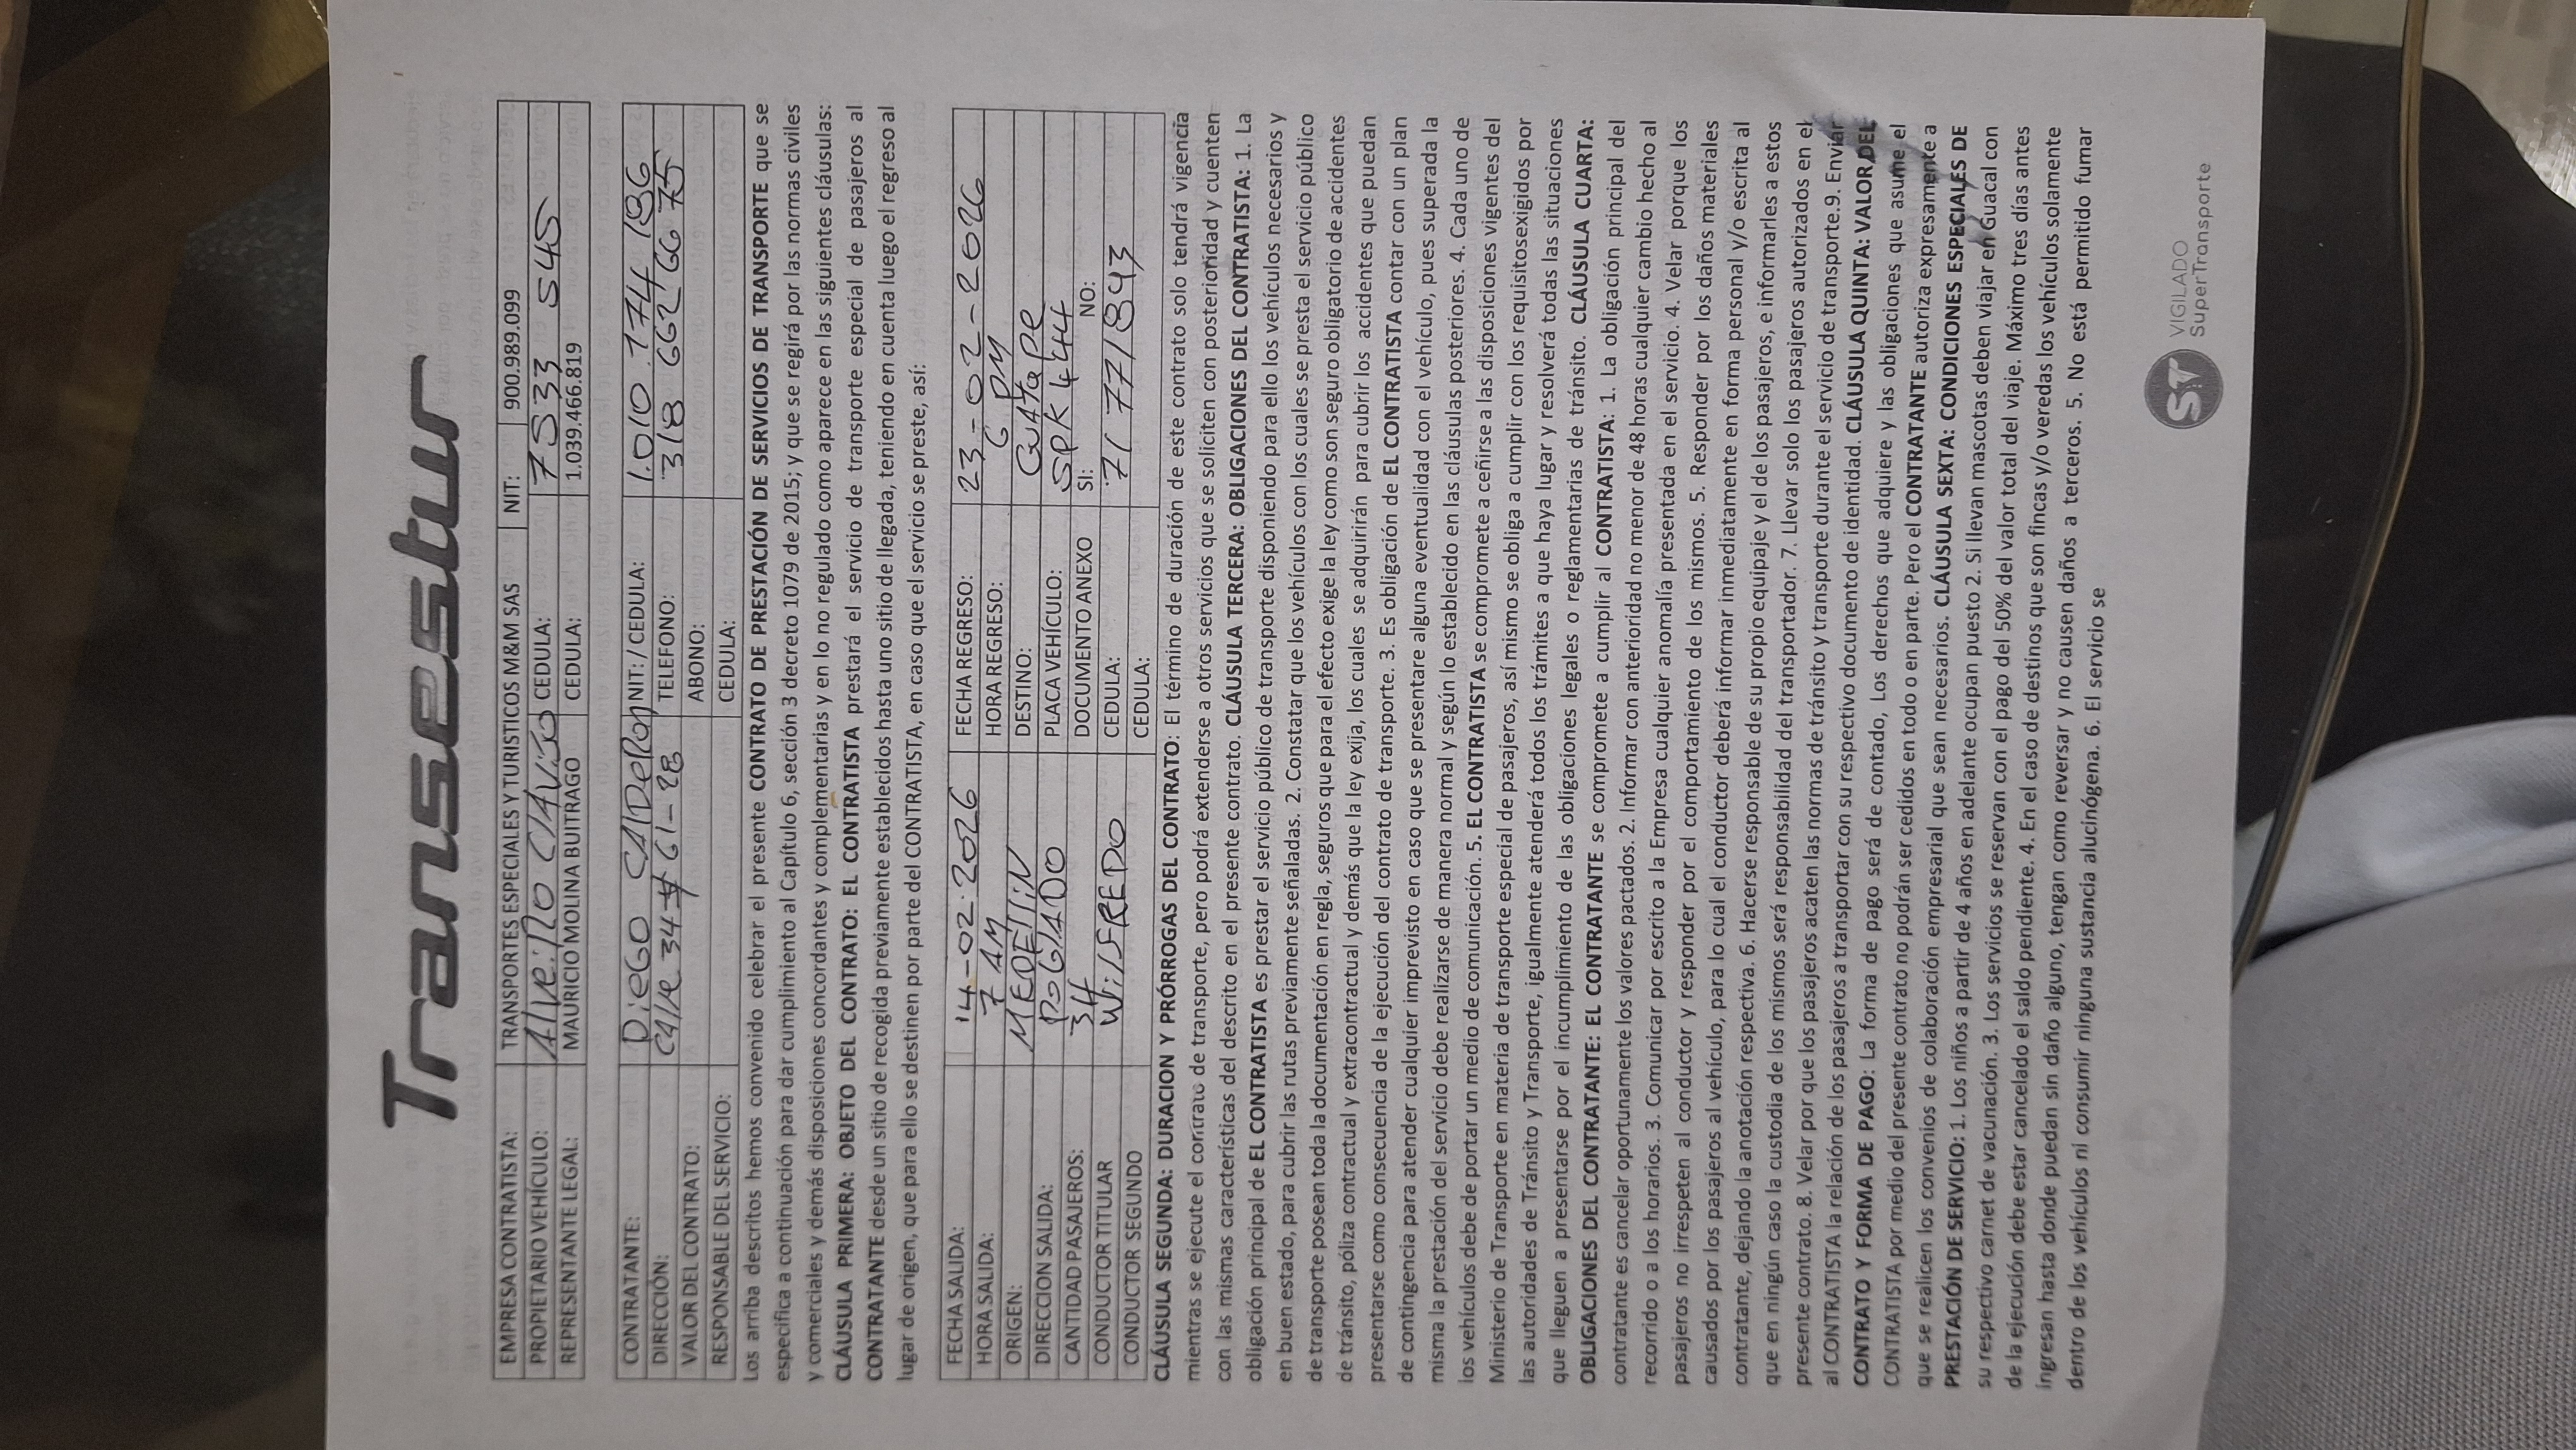 Transestur
EMPRESA CONTRATISTA: TRANSPORTES ESPECIALES Y TURISTICOS M&M SAS NIT: 900.989.099
PROPIETARIO VEHÍCULO: CEDULA: 7533 545
REPRESENTANTE LEGAL: MAURICIO MOLINA BUITRAGO CEDULA: 1.039.466.819
CONTRATANTE: DiEGO NIT: / CEDULA: 1.010.174 186
DIRECCIÓN: CAlle 34 # 61-28 TELEFONO: 318 662 66 75
VALOR DEL CONTRATO: ABONO:
RESPONSABLE DEL SERVICIO: CEDULA:
Los arriba descritos hemos convenido celebrar el presente CONTRATO DE PRESTACIÓN DE SERVICIOS DE TRANSPORTE que se
especifica a continuación para dar cumplimiento al Capítulo 6, sección 3 decreto 1079 de 2015; y que se regirá por las normas civiles
y comerciales y demás disposiciones concordantes y complementarias y en lo no regulado como aparece en las siguientes cláusulas:
CLÁUSULA PRIMERA: OBJETO DEL CONTRATO: EL CONTRATISTA prestará el servicio de transporte especial de pasajeros al
CONTRATANTE desde un sitio de recogida previamente establecidos hasta uno sitio de llegada, teniendo en cuenta luego el regreso al
lugar de origen, que para ello se destinen por parte del CONTRATISTA, en caso que el servicio se preste, así:
FECHA SALIDA: 14-02-2026 FECHA REGRESO: 23-02-2026
HORA SALIDA: 7 AM HORA REGRESO: 6 PM
ORIGEN: MEDELLiN DESTINO: GUATAPE
DIRECCION SALIDA: POBLADO PLACA VEHÍCULO: SPK 444
CANTIDAD PASAJEROS: 34 DOCUMENTO ANEXO SI: NO:
CONDUCTOR TITULAR WilFREDO CEDULA: 71 771843
CONDUCTOR SEGUNDO CEDULA:
CLÁUSULA SEGUNDA: DURACION Y PRÓRROGAS DEL CONTRATO: El término de duración de este contrato solo tendrá vigencia
mientras se ejecute el contrato de transporte, pero podrá extenderse a otros servicios que se soliciten con posterioridad y cuenten
con las mismas características del descrito en el presente contrato. CLÁUSULA TERCERA: OBLIGACIONES DEL CONTRATISTA: 1. La
obligación principal de EL CONTRATISTA es prestar el servicio público de transporte disponiendo para ello los vehículos necesarios y
en buen estado, para cubrir las rutas previamente señaladas. 2. Constatar que los vehículos con los cuales se presta el servicio público
de transporte posean toda la documentación en regla, seguros que para el efecto exige la ley como son seguro obligatorio de accidentes
de tránsito, póliza contractual y extracontractual y demás que la ley exija, los cuales se adquirirán para cubrir los accidentes que puedan
presentarse como consecuencia de la ejecución del contrato de transporte. 3. Es obligación de EL CONTRATISTA contar con un plan
de contingencia para atender cualquier imprevisto en caso que se presentare alguna eventualidad con el vehículo, pues superada la
misma la prestación del servicio debe realizarse de manera normal y según lo establecido en las cláusulas posteriores. 4. Cada uno de
los vehículos debe de portar un medio de comunicación. 5. EL CONTRATISTA se compromete a ceñirse a las disposiciones vigentes del
Ministerio de Transporte en materia de transporte especial de pasajeros, así mismo se obliga a cumplir con los requisitosexigidos por
las autoridades de Tránsito y Transporte, igualmente atenderá todos los trámites a que haya lugar y resolverá todas las situaciones
que lleguen a presentarse por el incumplimiento de las obligaciones legales o reglamentarias de tránsito. CLÁUSULA CUARTA:
OBLIGACIONES DEL CONTRATANTE: EL CONTRATANTE se compromete a cumplir al CONTRATISTA: 1. La obligación principal del
contratante es cancelar oportunamente los valores pactados. 2. Informar con anterioridad no menor de 48 horas cualquier cambio hecho al
recorrido o a los horarios. 3. Comunicar por escrito a la Empresa cualquier anomalía presentada en el servicio. 4. Velar porque los
pasajeros no irrespeten al conductor y responder por el comportamiento de los mismos. 5. Responder por los daños materiales
causados por los pasajeros al vehículo, para lo cual el conductor deberá informar inmediatamente en forma personal y/o escrita al
contratante, dejando la anotación respectiva. 6. Hacerse responsable de su propio equipaje y el de los pasajeros, e informarles a estos
que en ningún caso la custodia de los mismos será responsabilidad del transportador. 7. Llevar solo los pasajeros autorizados en el
presente contrato. 8. Velar por que los pasajeros acaten las normas de tránsito y transporte durante el servicio de transporte.9. Enviar
al CONTRATISTA la relación de los pasajeros a transportar con su respectivo documento de identidad. CLÁUSULA QUINTA: VALOR DEL
CONTRATO Y FORMA DE PAGO: La forma de pago será de contado, Los derechos que adquiere y las obligaciones que asume el
CONTRATISTA por medio del presente contrato no podrán ser cedidos en todo o en parte. Pero el CONTRATANTE autoriza expresamente a
que se realicen los convenios de colaboración empresarial que sean necesarios. CLÁUSULA SEXTA: CONDICIONES ESPECIALES DE
PRESTACIÓN DE SERVICIO: 1. Los niños a partir de 4 años en adelante ocupan puesto 2. Si llevan mascotas deben viajar en Guacal con
su respectivo carnet de vacunación. 3. Los servicios se reservan con el pago del 50% del valor total del viaje. Máximo tres días antes
de la ejecución debe estar cancelado el saldo pendiente. 4. En el caso de destinos que son fincas y/o veredas los vehículos solamente
ingresan hasta donde puedan sin daño alguno, tengan como reversar y no causen daños a terceros. 5. No está permitido fumar
dentro de los vehículos ni consumir ninguna sustancia alucinógena. 6. El servicio se
ST VIGILADO
SuperTransporte